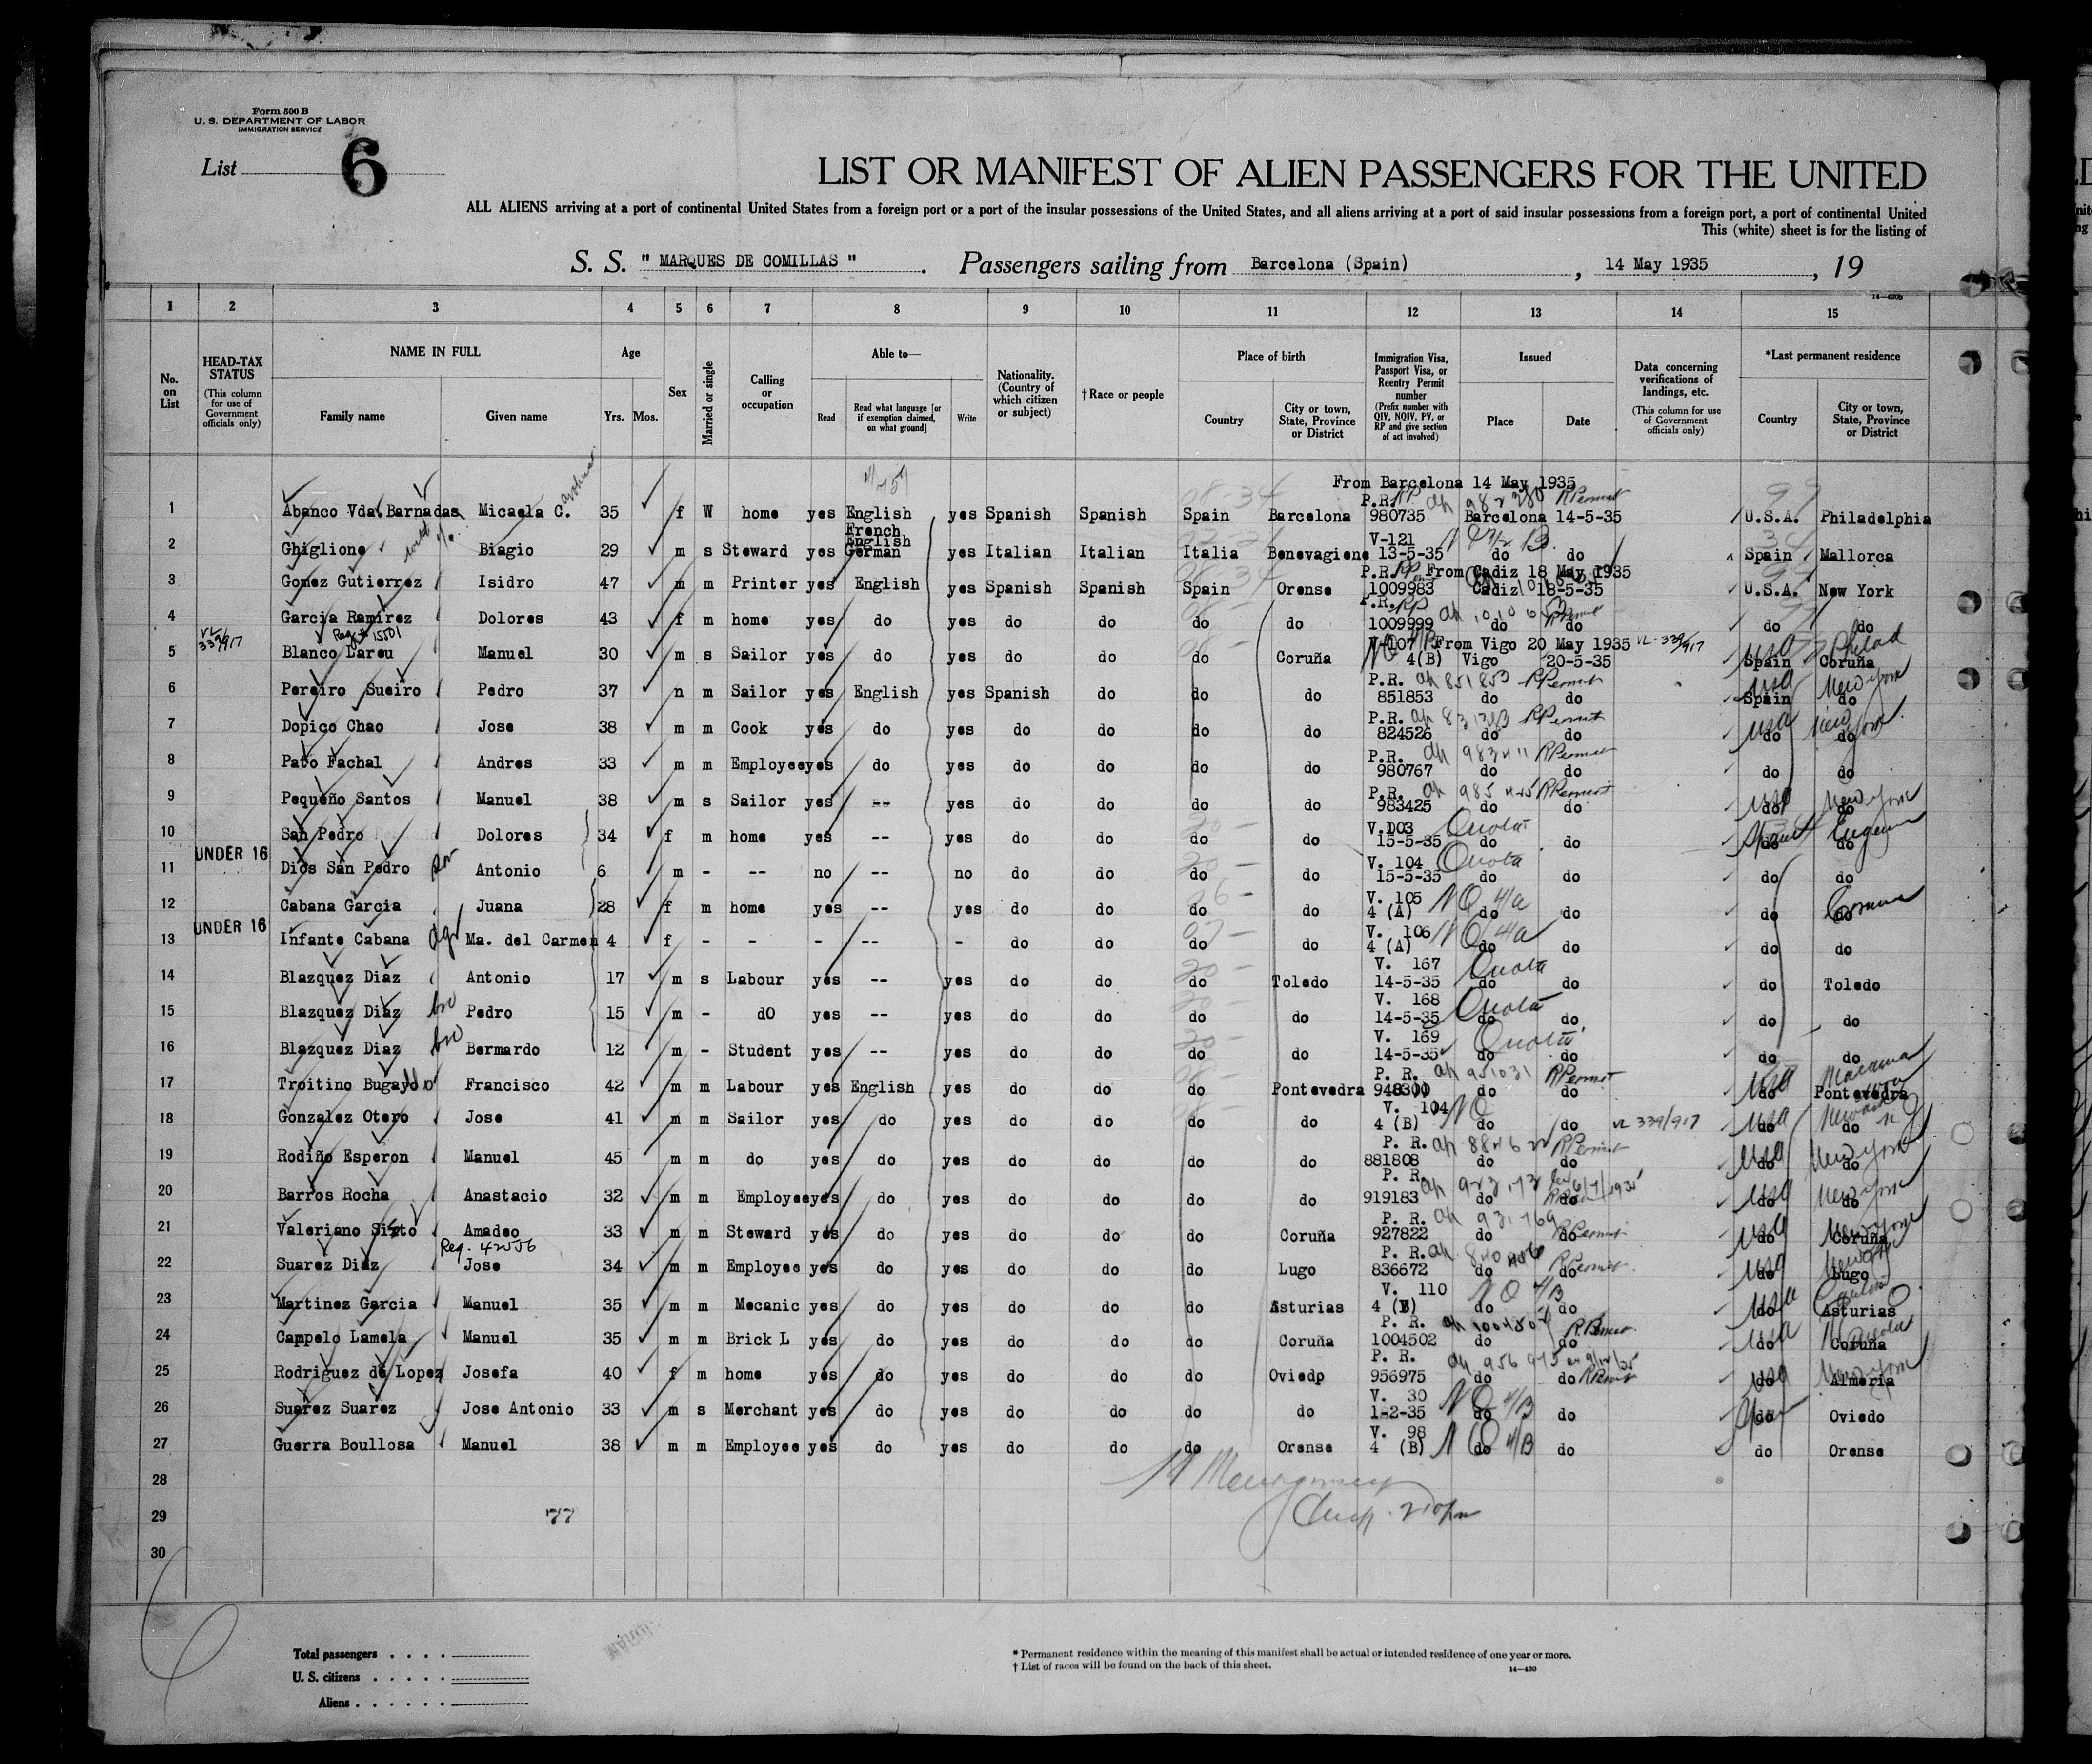 Form 500 B
U. S. DEPARTMENT OF LABOR
IMMIGRATION SERVICE
List 6
LIST OR MANIFEST OF ALIEN PASSENGERS FOR THE UNITED
ALL ALIENS arriving at a port of continental United States from a foreign port or a port of the insular possessions of the United States, and all aliens arriving at a port of said insular possessions from a foreign port, a port of continental United
This (white) sheet is for the listing of
S. S. " MARQUES DE COMILLAS " . Passengers sailing from Barcelona (Spain) , 14 May 1935 , 19
14—430b
1 2 3 4 5 6 7 8 9 10 11 12 13 14 15
No. on List
HEAD-TAX STATUS (This column for use of Government officials only)
NAME IN FULL Family name Given name
Age Yrs. Mos.
Sex
Married or single
Calling or occupation
Able to— Read Read what language [or if exemption claimed, on what ground] Write
Nationality. (Country of which citizen or subject)
†Race or people
Place of birth Country City or town, State, Province or District
Immigration Visa, Passport Visa, or Reentry Permit number (Prefix number with QIV, NQIV, PV, or RP and give section of act involved)
Issued Place Date
Data concerning verifications of landings, etc. (This column for use of Government officials only)
*Last permanent residence Country City or town, State, Province or District
From Barcelona 14 May 1935
1 Abanco Vda. Barnadas Micaela C. 35 f W home yes English yes Spanish Spanish Spain Barcelona P.R. 980735 RPermit Barcelona 14-5-35 U.S.A. Philadelphia
2 Ghiglione Biagio 29 m s Steward yes French English German yes Italian Italian Italia Benevagione V-121 13-5-35 do do Spain Mallorca
From Cadiz 18 May 1935
3 Gomez Gutierrez Isidro 47 m m Printer yes English yes Spanish Spanish Spain Orense P.R. 1009983 Cadiz 18-5-35 U.S.A. New York
4 Garcia Ramirez Dolores 43 f m home yes do yes do do do do P.R. RP 1009999 do do do do
From Vigo 20 May 1935
5 VL 339/917 Blanco Lareu Reg. 15501 Manuel 30 m s Sailor yes do yes do do do Coruña V-107 4(B) Vigo 20-5-35 VL-339/917 Spain Coruña USA Philad
6 Pereiro Sueiro Pedro 37 n m Sailor yes English yes Spanish do do do P.R. 851853 ap 851853 RPermit do do Spain do USA New York
7 Dopico Chao Jose 38 m m Cook yes do yes do do do do P.R. 824526 RPermit do do do do USA New York
8 Pato Fachal Andres 33 m m Employee yes do yes do do do do P.R. 980767 ap 983411 RPermit do do do do
9 Pequeño Santos Manuel 38 m s Sailor yes -- yes do do do do P.R. 983425 RPermit do do do do USA New York
10 San Pedro Dolores 34 f m home yes -- yes do do do do V.103 15-5-35 Quota do do do do
11 UNDER 16 Dios San Pedro son Antonio 6 m - -- no -- no do do do do V. 104 15-5-35 Quota do do do do
12 Cabana Garcia Juana 28 f m home yes -- yes do do do do V. 105 4 (A) NQ 4/a do do do do Coruna
13 UNDER 16 Infante Cabana dgr Ma. del Carmen 4 f - - - -- - do do do do V. 106 4 (A) NQ 4/a do do do do
14 Blazquez Diaz Antonio 17 m s Labour yes -- yes do do do Toledo V. 167 14-5-35 Quota do do do Toledo
15 Blazquez Diaz bro Pedro 15 m - dO yes -- yes do do do do V. 168 14-5-35 Quota do do do do
16 Blazquez Diaz bro Bermardo 12 m - Student yes -- yes do do do do V. 169 14-5-35 Quota do do do do
17 Troitino Bugayo Francisco 42 m m Labour yes English yes do do do Pontevedra P. R. 948300 ap 951031 RPermit do do do Pontevedra USA
18 Gonzalez Otero Jose 41 m m Sailor yes do yes do do do do V. 104 4 (B) NQ do do VL 339/917 do do USA Newark NJ
19 Rodiño Esperon Manuel 45 m m do yes do yes do do do do P. R. 881808 RPermit do do do do USA New York
20 Barros Rocha Anastacio 32 m m Employee yes do yes do do do do P. R. 919183 do do do do USA New York
21 Valeriano Sixto Amadeo 33 m m Steward yes do yes do do do Coruña P. R. 927822 ap 931769 RPermit do do do Coruña USA New York
22 Suarez Diaz Reg. 42556 Jose 34 m m Employee yes do yes do do do Lugo P. R. 836672 RPermit do do do Lugo USA
23 Martinez Garcia Manuel 35 m m Mecanic yes do yes do do do Asturias V. 110 4 (B) NQ 4/B do do do Asturias USA
24 Campelo Lamela Manuel 35 m m Brick L yes do yes do do do Coruña P. R. 1004502 RPermit do do do Coruña USA
25 Rodriguez de Lopez Josefa 40 f m home yes do yes do do do Oviedo P. R. 956975 RPermit do do do Almeria USA New York
26 Suarez Suarez Jose Antonio 33 m s Merchant yes do yes do do do do V. 30 1-2-35 NQ 4/B do do do Oviedo
27 Guerra Boullosa Manuel 38 m m Employee yes do yes do do do Orense V. 98 4 (B) NQ 4/B do do do Orense
28
29 77
30
Total passengers
U. S. citizens
Aliens
* Permanent residence within the meaning of this manifest shall be actual or intended residence of one year or more.
† List of races will be found on the back of this sheet.
14—430